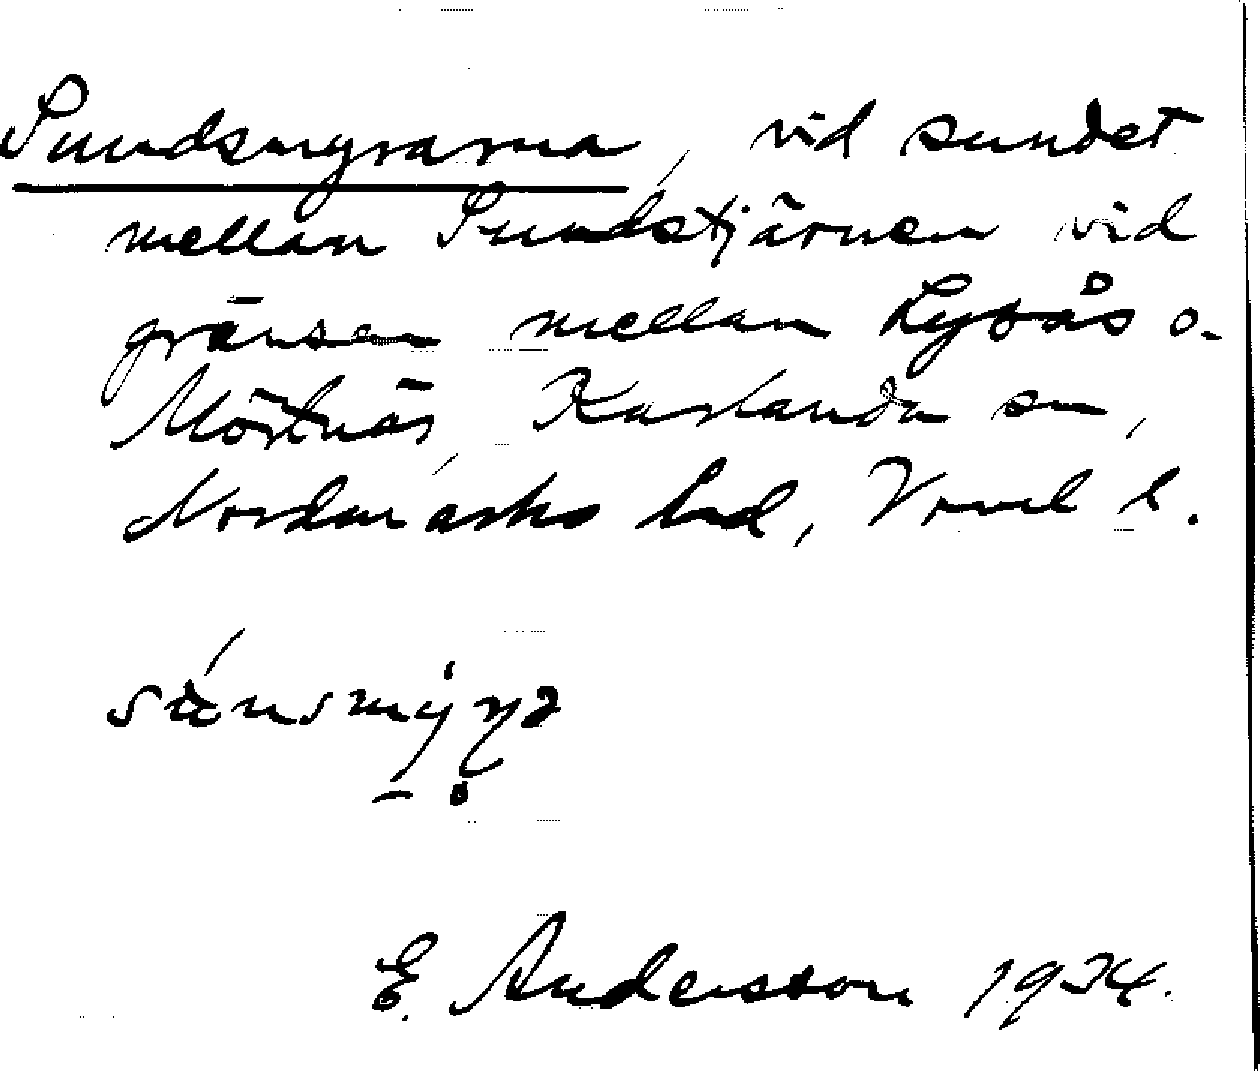 Sundsmyrarna, vid sundet
mellan Sundstjärnen vid
gränsen mellan Lybås o.
Mörtnäs, Karlanda sn,
Nordmarks hrd, Vrml l.
E. Andersson 1934.